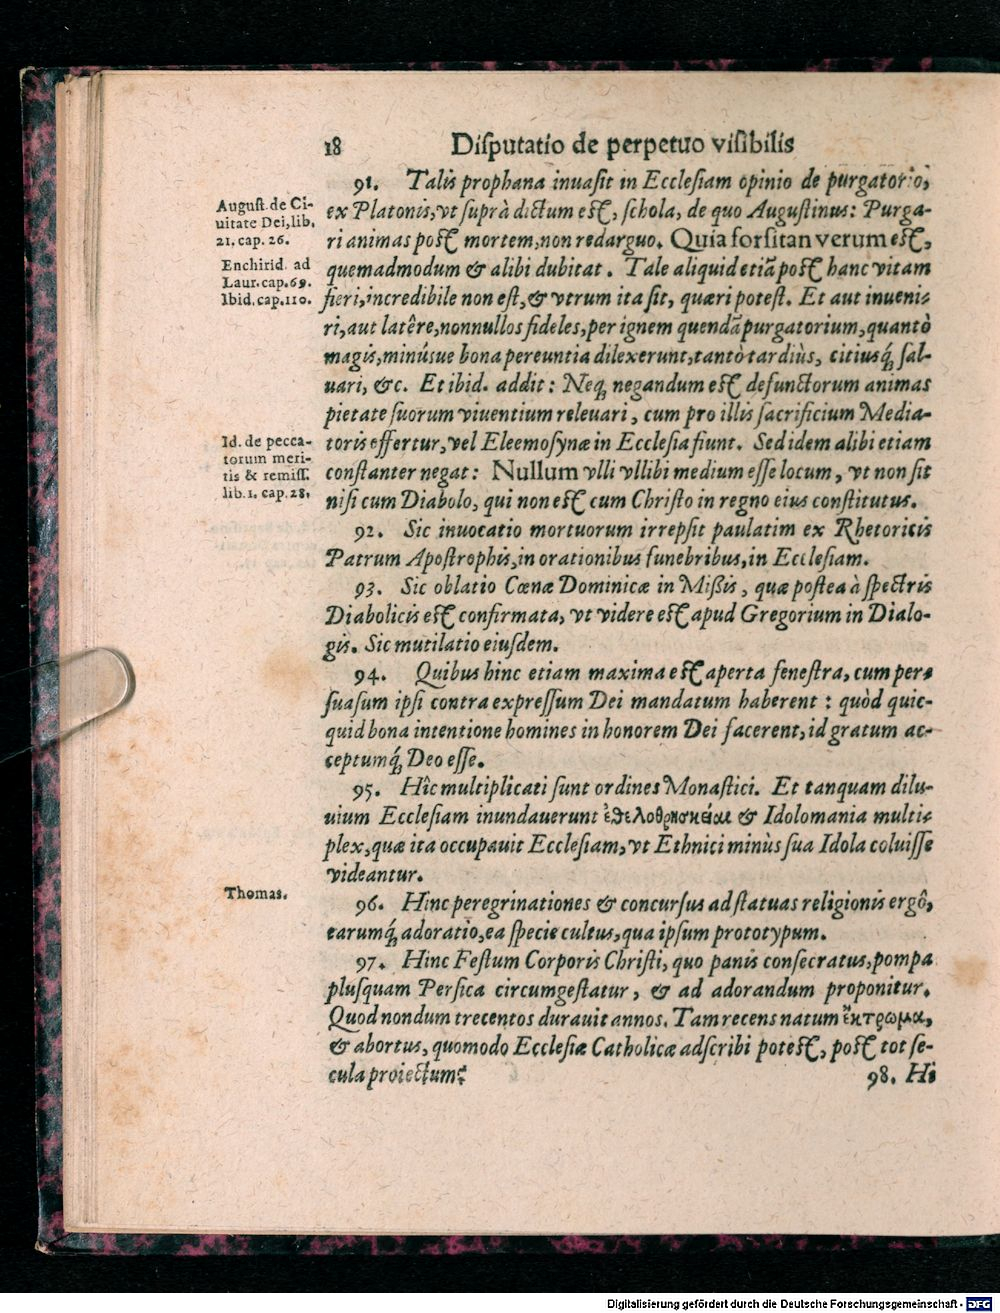 18 Diſputatio de perpetuo viſibilis
91. Talis prophana inuaſit in Eccleſiam opinio de purgatorio,
Auguſt. de Ci-
uitate Dei, lib.
21. cap. 26.
ex Platonis, vt ſuprà dictum eſt, ſchola, de quo Auguſtinus: Purga-
ri animas poſt mortem, non redarguo. Quia forſitan verum eſt,
Enchirid. ad
Laur. cap. 69.
Ibid. cap. 110.
quemadmodum & alibi dubitat. Tale aliquid etiã poſt hanc vitam
fieri, incredibile non eſt, & vtrum ita ſit, quæri poteſt. Et aut inueni-
ri, aut latêre, nonnullos fideles, per ignem quendã purgatorium, quantò
magis, minúsue bona pereuntia dilexerunt, tantò tardiùs, citiusq́; ſal-
uari, &c. Et ibid. addit: Neq; negandum eſt defunctorum animas
pietate ſuorum viuentium releuari, cum pro illis ſacrificium Media-
Id. de pecca-
torum meri-
tis & remiſſ.
lib. 1. cap. 28.
toris offertur, vel Eleemoſynæ in Eccleſia fiunt. Sed idem alibi etiam
conſtanter negat: Nullum vlli vllibi medium eſſe locum, vt non ſit
niſi cum Diabolo, qui non eſt cum Chriſto in regno eius conſtitutus.
92. Sic inuocatio mortuorum irrepſit paulatim ex Rhetoricis
Patrum Apoſtrophis, in orationibus funebribus, in Eccleſiam.
93. Sic oblatio Cœnæ Dominicæ in Miſsis, quæ poſtea à ſpectris
Diabolicis eſt confirmata, vt videre eſt apud Gregorium in Dialo-
gis. Sic mutilatio eiuſdem.
94. Quibus hinc etiam maxima eſt aperta feneſtra, cum per-
ſuaſum ipſi contra expreſſum Dei mandatum haberent: quòd quic-
quid bona intentione homines in honorem Dei facerent, id gratum ac-
ceptumq́; Deo eſſe.
95. Hîc multiplicati ſunt ordines Monaſtici. Et tanquam dilu-
uium Eccleſiam inundauerunt ἐθελοθρησκεῖαι & Idolomania multi-
plex, quæ ita occupauit Eccleſiam, vt Ethnici minùs ſua Idola coluiſſe
videantur.
Thomas.
96. Hinc peregrinationes & concurſus ad ſtatuas religionis ergô,
earumq́; adoratio, ea ſpecie cultus, qua ipſum prototypum.
97. Hinc Feſtum Corporis Chriſti, quo panis conſecratus, pompa
pluſquam Perſica circumgeſtatur, & ad adorandum proponitur.
Quod nondum trecentos durauit annos. Tam recens natum ἔκτρωμα,
& abortus, quomodo Eccleſiæ Catholicæ adſcribi poteſt, poſt tot ſe-
cula proiectum?
98. Hi
Digitalisierung gefördert durch die Deutsche Forschungsgemeinschaft - DFG